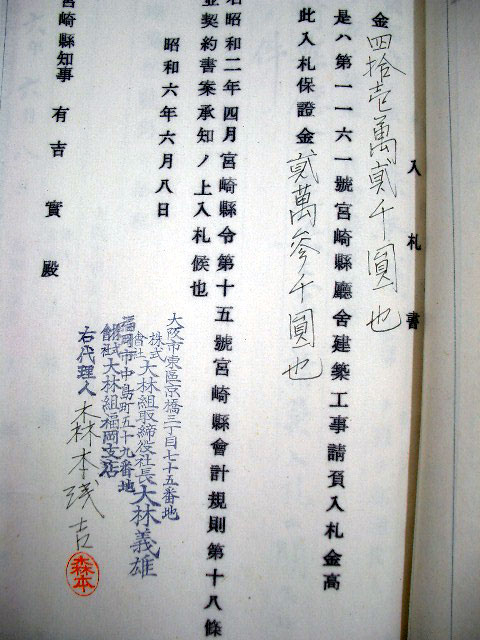 入札書
金四拾壱萬貳千圓也
是ハ第一一六一號宮崎縣廳舍建築工事請負入札金高
此入札保證金貳萬參千圓也
昭和二年四月宮崎縣令第十五號宮崎縣會計規則第十八條
並契約書案承知ノ上入札候也
昭和六年六月八日
大阪市東區京橋三丁目七十五番地
株式會社大林組取締役社長大林義雄
福岡市中島町五十九番地
株式會社大林組福岡支店
右代理人森本
森本
宮崎縣知事有吉實殿